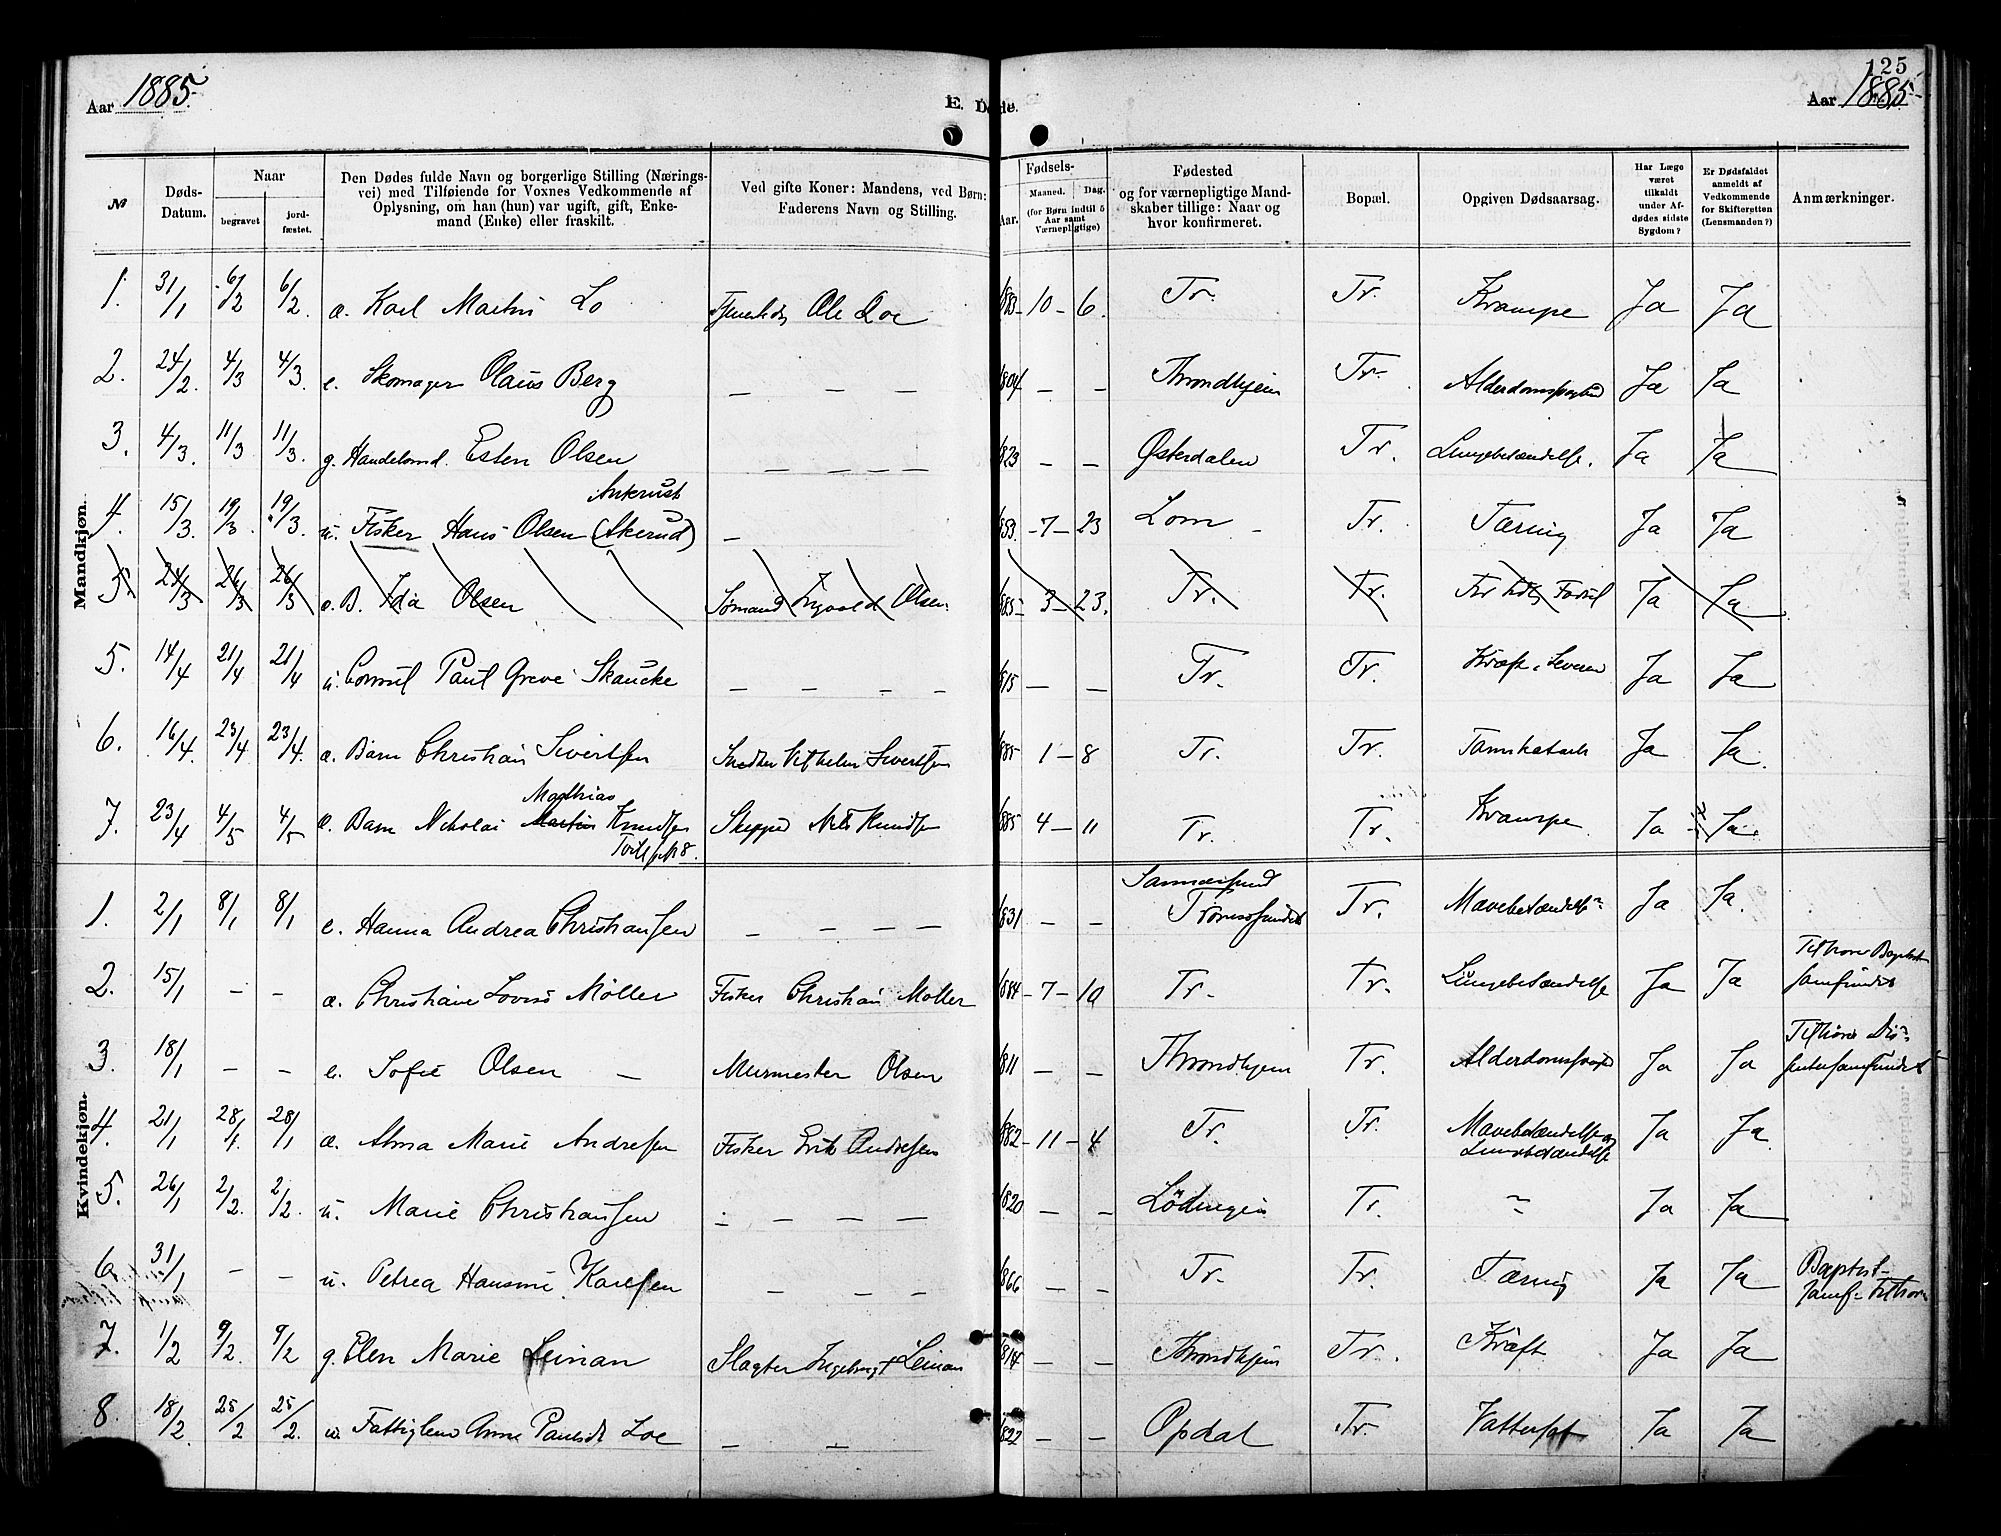 Aar 1885.
E. Døde.
125
Aar 1885
№
Døds-Datum.
Naar
begravet
jordfæstet.
Den Dødes fulde Navn og borgerlige Stilling (Nærings-
vei) med Tilføiende for Voxnes Vedkommende af
Oplysning, om han (hun) var ugift, gift, Enke-
mand (Enke) eller fraskilt.
Ved gifte Koner: Mandens, ved Børn:
Faderens Navn og Stilling.
Fødsels-
Aar.
Maaned.
Dag.
(for Børn indtil 5
Aar samt
Værnepligtige)
Fødested
og for værnepligtige Mand-
skaber tillige: Naar og
hvor konfirmeret.
Bopæl.
Opgiven Dødsaarsag.
Har Læge
været
tilkaldt
under Af-
dødes sidste
Sygdom?
Er Dødsfaldet
anmeldt af
Vedkommende
for Skifteretten
(Lensmanden?)
Anmærkninger.
Mandkjøn.
1. 31/1 6/2 6/2. æ. Karl Martin Lo Ole Loe 1883 - 10 - 6. Tr. Tr. Krampe Ja Ja
2. 24/2. 4/3 4/3. e. Skomager Olaus Berg — — — 1804 — — Throndhjem Tr. Ja Ja
3. 4/3. 11/3 11/3. g. Handelsmd. Esten Olsen — — — — 1823 — — Østerdalen Tr. Lungebetændelse. Ja Ja
Ankrust
4. 15/3. 19/3. 19/3. u. Fisker Hans Olsen (Akerud) — 1853. - 7 - 23 Lom - Tr. Tæring Ja Ja
5. 24/3 26/3 26/3 æ. B. Ida Olsen Sømand Ingvald Olsen 1885 - 3 - 23. Tr. Tr. Ja Ja
5. 14/4 21/4 21/4 u. Consul Paul Greve Skancke — — — — 1815 — — Tr. Tr. Kræft i Leveren Ja Ja
6. 16/4. 23/4 23/4. æ. Barn Christian Sivertsen Snedker Vilhelm Sivertsen 1885 1 - 8 Tr. Tr. Ja Ja.
Mathias
7. 23/4 4/5 4/5 æ. Barn Nikolai Martin Knudsen Skipper Nils Knudsen 1885 4 - 11 Tr. Tr. Krampe Ja Ja.
№ 8.
Kvindekjøn.
1. 2/1 8/1 8/1 e. Hanna Andrea Christiansen — — — — 1831 — — Tromsøsundet Tr. Mavebetændelse Ja Ja.
2. 15/1 - - æ. Christiane Lovise Møller Fisker Christian Møller 1884 - 7 - 10 Tr. Tr. Lungebetændelse Ja Ja Tilhører Baptist
samfundet
3. 18/1 - - e. Sofie Olsen — Murmester Olsen 1811 — — Throndhjem Tr. Ja Ja Tilhører Dis-
sentersamfundet
4. 21/1 28/1. 28/1 æ. Alma Marie Andresen Fisker Erik Andresen 1882 - 11 - 4 Tr. Tr. Mavebetændelse og
Lungebetændelse Ja Ja.
5. 26/1 2/2. 2/2. u. Marie Christiansen — — — — 1820 — — Lödingen Tr. Ja Ja
6. 31/1 - - u. Petrea Hansine Karlsen — — — 1866 — — Tr. Tr. Tæring Ja Ja Baptist-
samf. tilhører
7. 1/2 9/2. 9/2 g. Elen Marie Leinan Slagter Ingebrigt Leinan 1814 — — Throndhjem Tr. Kræft Ja Ja
8. 18/2. 25/2 25/2. u. Fattiglem Anne Paulsdt Loe — — 1822 — — Opdal Tr. Vattersot Ja Ja